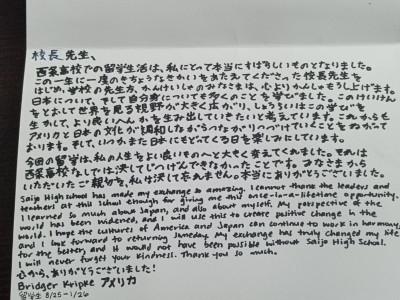 校長先生、
西条高校での留学生活は、私にとって本当にすばらしいものとなりました。
この一生に一度のきちょうなきかいをあたえてくださった校長先生を
はじめ、学校の先生方、かんけいしゃのみなさまに、心よりかんしゃもうし上げます。
日本について、そして自分自身についても多くのことを学びました。このけいけん
をとおして世界を見る視野が大きく広がり、しょうらいはこの学びを
生かして、より良いへんかを生み出していきたいと考えています。これからも
アメリカと日本の文化が調和しながらつながりつづけていくことをねがって
おります。そして、いつかまた日本にもどってくる日を楽しみにしています。
今回の留学は、私の人生をより良いものへと大きく変えてくれました。それは
西条高校なしでは決してじつげんできなかったことです。みなさまから
いただいたご親切を、私は決して忘れません。本当にありがとうございました。
Saijo High School has made my exchange so amazing. I cannot thank the leaders and
teachers at this school enough for giving me this once-in-a-lifetime opportunity.
I learned so much about Japan, and also about myself. My perspective of the
world has been widened, and I will use this to create positive change in the
world. I hope the cultures of America and Japan can continue to work in harmony,
and I look forward to returning someday. My exchange has truly changed my life
for the better, and it would not have been possible without Saijo High School.
I will never forget your kindness. Thank you so much.
心から、ありがとうございました!
Bridger Kripke アメリカ
留学生 8/25-1/26